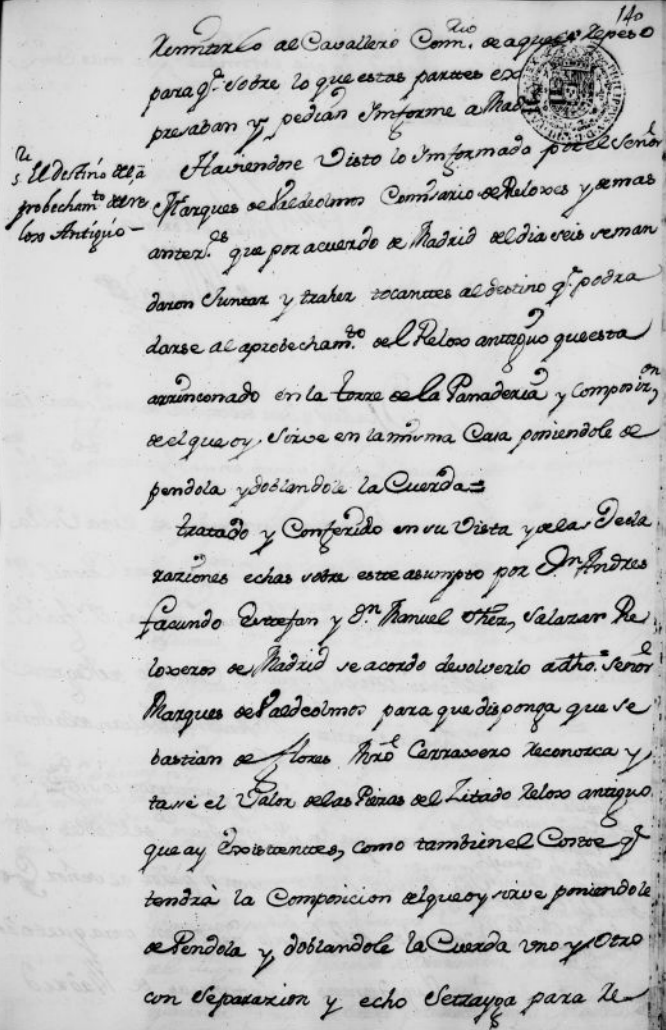 140
Remitirlo al Cavallero Com.rio de aquel Repeso
para q.e sobre lo que estas partes ex
presaban y pedian Ymforme a Madrid
Haviendose Visto lo Ymformado por el Señor
Marques de Valdeolmos Comisario de Reloxes y demas
anter.es que por acuerdo de Madrid del dia seis se man
daron Juntar y traher tocanttes al destino q.e podra
darse al aprobecham.to del Relox antiguo que esta
arrinconado en la torre de la Panaderia y composiz.on
de el que oy sirve en la misma Casa poniendole de
pendola y doblandole la Cuerda =
tratado y Conferido en su Vista y de las Decla
raziones echas sobre estte asumpto por D.n Andres
facundo Esttefan y D.n Manuel Salazar Re
loxeros de Madrid se acordo devolverlo a dho. Señor
Marques de Valdeolmos para que disponga que Se
bastian de flores Mro Cerraxero Reconozca y
tase el Valor de las Piezas del Zitado Relox antiguo
que ay Existenttes, como tambien el Coste q.e
tendrà la Composicion del que oy sirve poniendole
de Pendola y doblandole la Cuerda uno y otro
con Separazion y echo Se trayga para Re
S.re El destino del a
probecham.to del re
lox Antiguo –